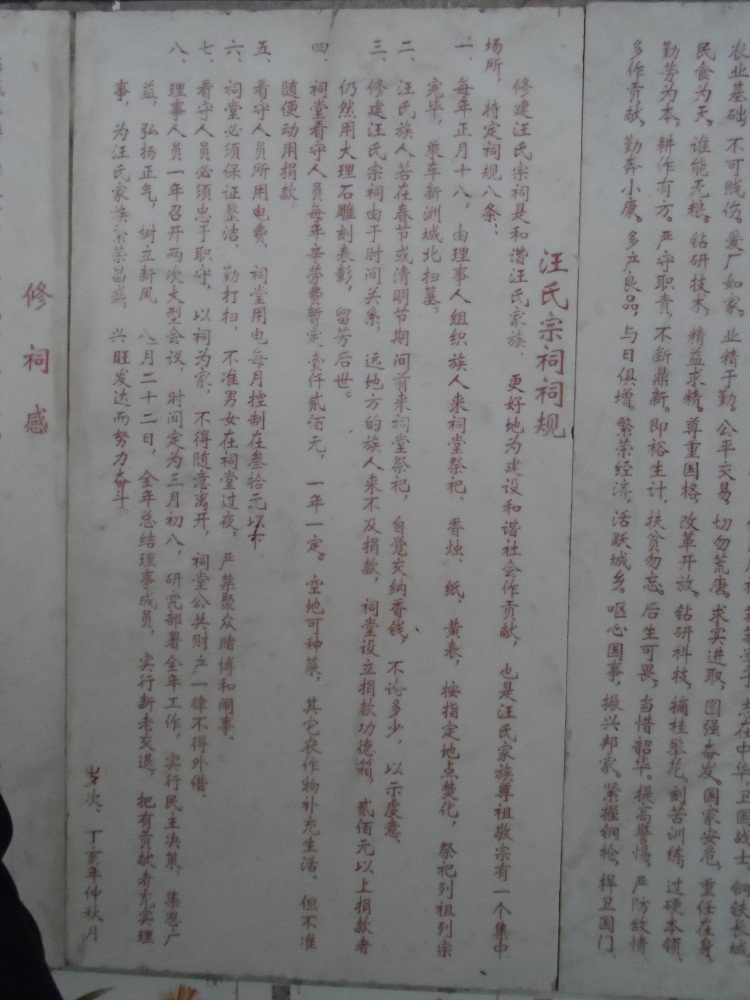 农业基础，不可贱伤。爱厂如家，业精于勤。公平交易，切勿荒唐。求实进取，图强奋发。国家安危，重任在身
民食为天，谁能无粮。钻研技术，精益求精。尊重国格，改革开放，钻研科技，摘桂繁花。刻苦训练，过硬本领
勤劳为本，耕作有方。严守职责，不断鼎新。即裕生计，扶贫勿忘。后生可畏，当惜韶华。提高警惕，严防敌情
多作贡献，勤奔小康。多产良品，与日俱增。繁荣经济，活跃城乡。呕心国事，振兴邦家。紧握钢枪，捍卫国门
汪氏宗祠祠规
修建汪氏宗祠是和谐汪氏家族，更好地为建设和谐社会作贡献，也是汪氏家族尊祖敬宗有一个集中
场所，特定祠规八条：
一、每年正月十八，由理事人组织族人来祠堂祭祀，香烛、纸、黄表，按指定地点焚化，祭祀列祖列宗
完毕，乘车新洲城北扫墓。
二、汪氏族人若在春节或清明节期间前来祠堂祭祀，自觉交纳香钱，不论多少，以示虔意。
三、修建汪氏宗祠由于时间关系，远地方的族人来不及捐款，祠堂设立捐款功德箱，贰佰元以上捐款者
仍然用大理石雕刻表彰，留芳后世。
四、祠堂看守人员每年辛劳费暂定壹仟贰佰元，一年一定。空地可种菜，其它农作物补充生活，但不准
随便动用捐款。
五、看守人员所用电费，祠堂用电每月控制在叁拾元以下。
六、祠堂必须保证整洁，勤打扫，不准男女在祠堂过夜，严禁聚众赌博和闹事。
七、看守人员必须忠于职守，以祠为家，不得随意离开，祠堂公共财产一律不得外借。
八、理事人员一年召开两次大型会议，时间定为三月初八，研究部署全年工作，实行民主决策，集思广
益，弘扬正气，树立新风，八月二十二日，全年总结理事成员，实行新老交退，把有贡献者充实理
事，为汪氏家族繁荣昌盛，兴旺发达而努力奋斗。
岁次、丁亥年仲秋月
修祠感